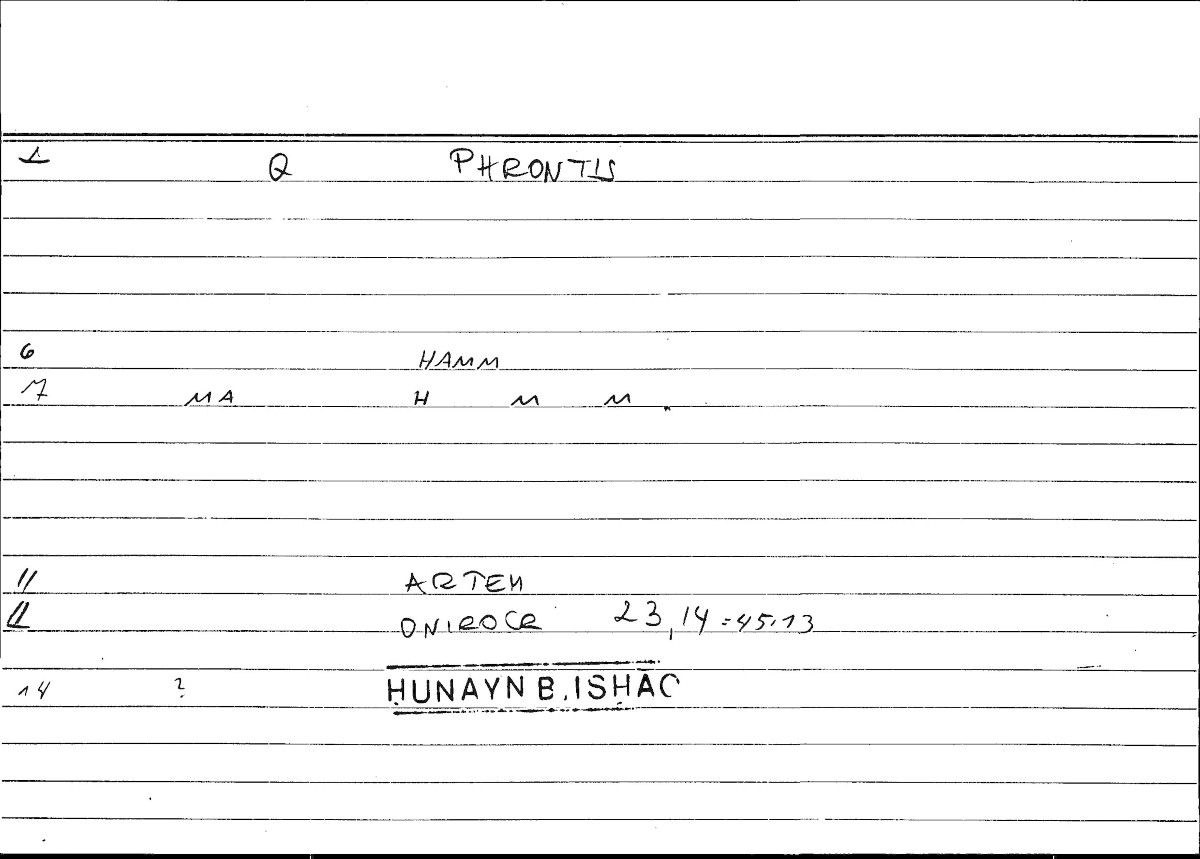 1 Q PHRONTIS
6 HAMM
7 MA H M M .
11 ARTEM
12 ONIROCR 23,14 = 45,13
14 ? ḤUNAYN B. ISḤĀQ